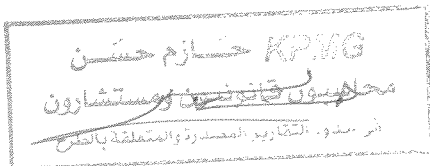 KPMG حازم حسن
محاسبون قانونيون ومستشارون
في حدود التقارير المصدرة والمتعلقة بالطرح